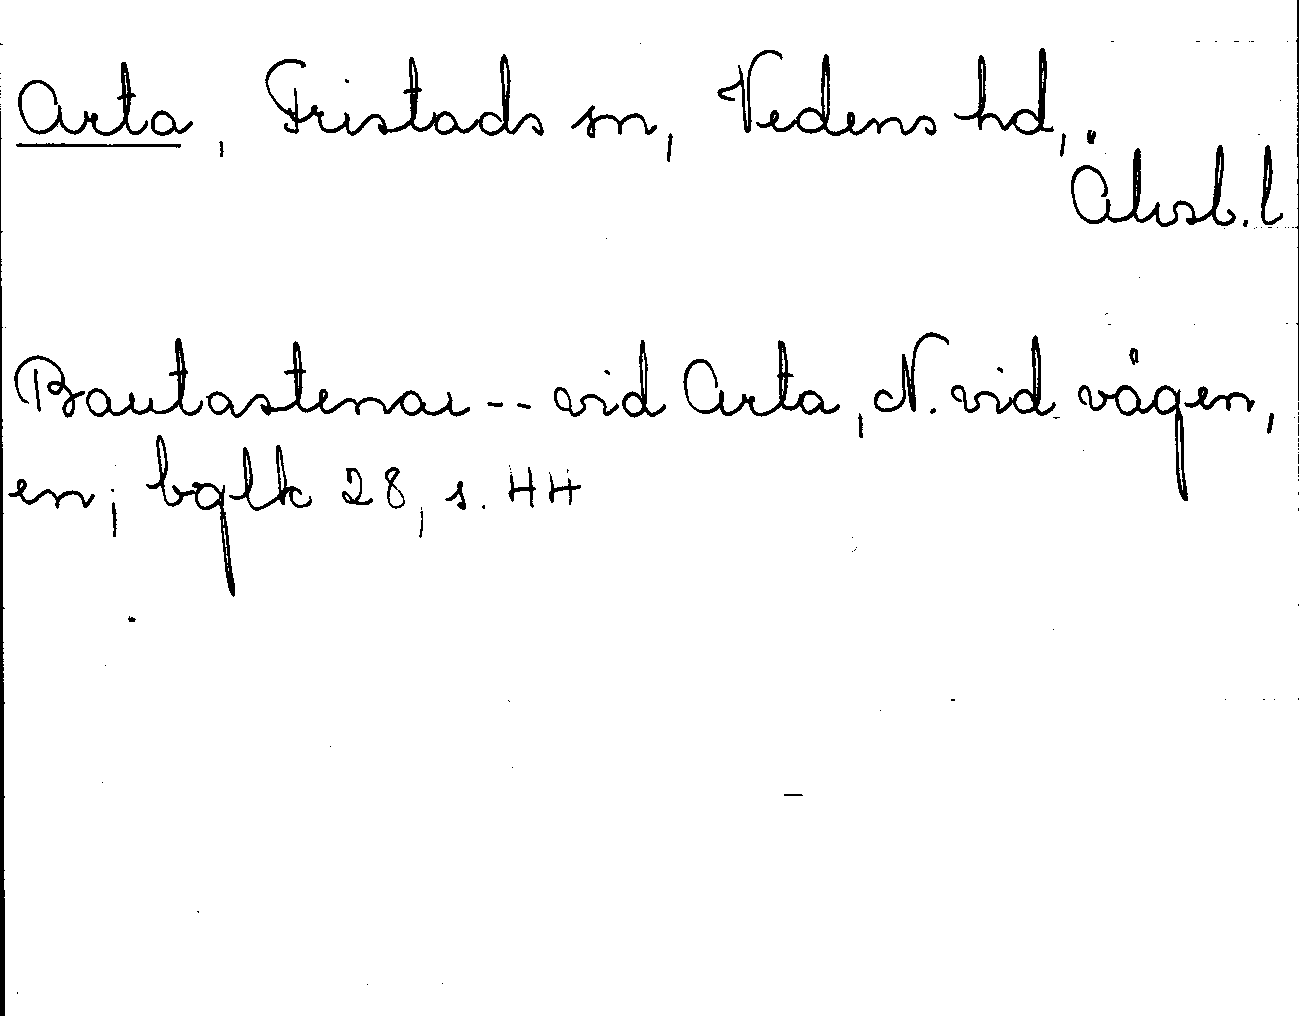 Arta, Fristads sn, Vedens hd,
Älvsb. l
Bautastenar -- vid Arta, N. vid vägen,
en; bglk 28, s. 44